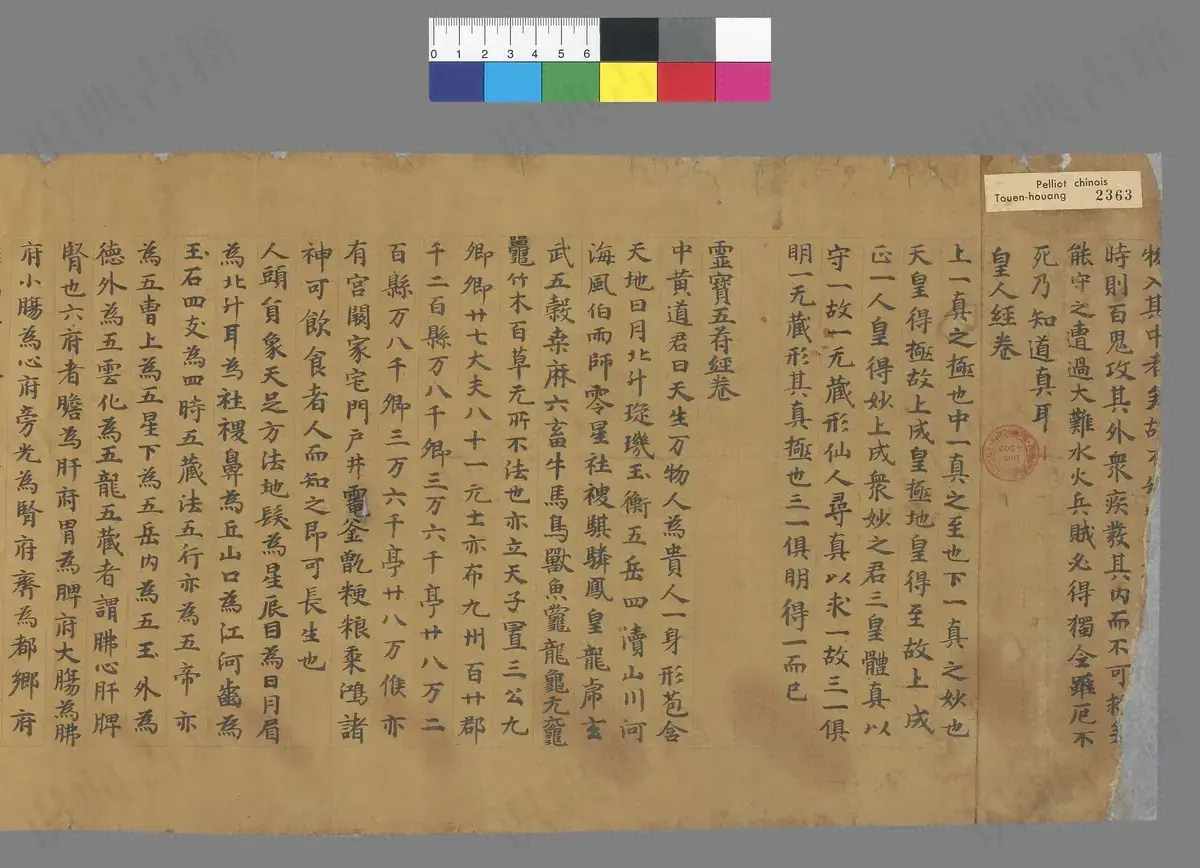 0 1 2 3 4 5 6
Pelliot chinois
Touen-houang 2363
物入其中者
時則百鬼攻其外衆疾發其内而不可
能守之遭過大難水火兵賊必得獨全雖厄不
死乃知道真耳
皇人經卷
上一真之極也中一真之至也下一真之妙也
天皇得極故上成皇極地皇得至故上成
正一人皇得妙上成衆妙之君三皇體真以
守一故一无藏形仙人尋真以求一故三一俱
明一无藏形其真極也三一俱明得一而已
靈寶五符經卷
中黄道君曰天生万物人為貴人一身形苞含
天地日月北斗琁璣玉衡五岳四瀆山川河
海風伯雨師零星社稷騏驎鳳皇龍席玄
武五穀桒麻六畜牛馬鳥獸魚鼈龍龜元鼉
鼍竹木百草无所不法也亦立天子置三公九
卿卿廿七大夫八十一元士亦布九州百廿郡
千二百縣万八千鄉三万六千亭廿八万二
百縣万八千鄉三万六千亭廿八万候亦
有宫闕家宅門户井竃釜甑粳粮乘鴻諸
神可飲食者人而知之即可長生也
人頭負象天足方法地髮為星辰目為日月眉
為北斗耳為社稷鼻為丘山口為江河齒為
玉石四支為四時五藏法五行亦為五帝亦
為五曹上為五星下為五岳内為五玉外為
德外為五雲化為五龍五藏者謂肺心肝脾
腎也六府者膽為肝府胃為脾府大膓為肺
府小膓為心府旁光為腎府臍為都鄉府